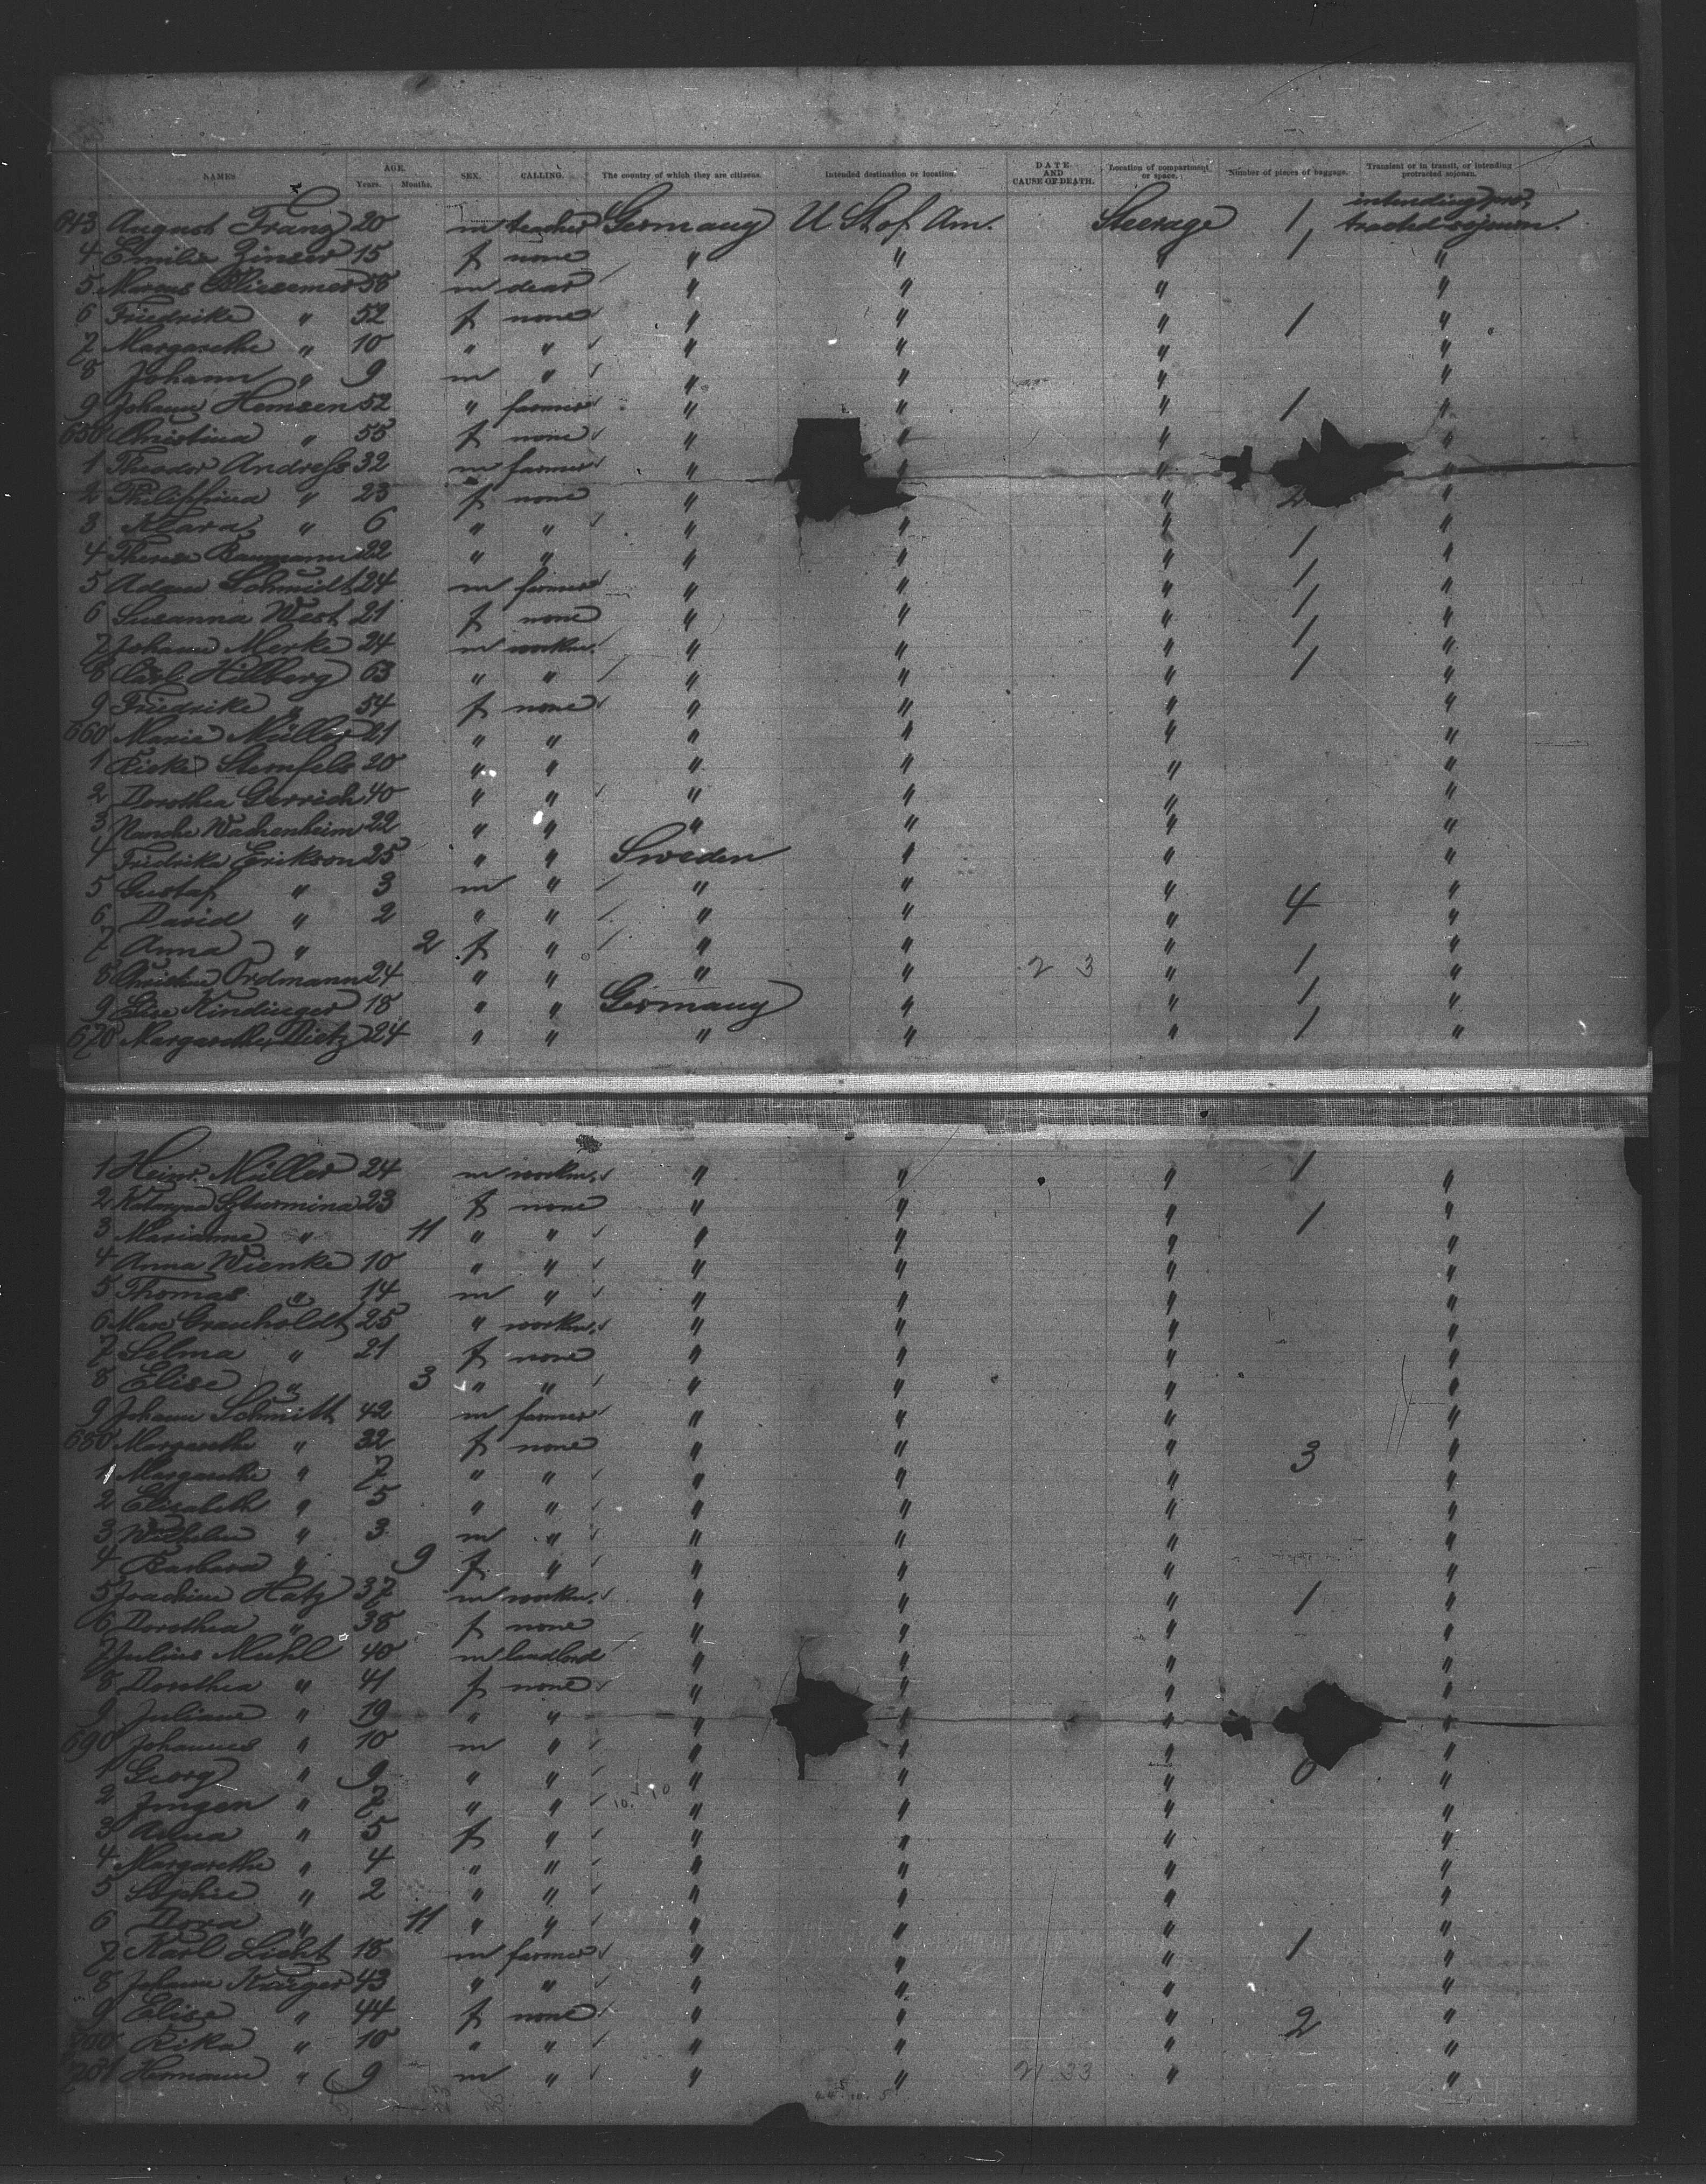 NAMES AGE. Years. Months. SEX. CALLING. The country of which they are citizens. Intended destination or location. DATE AND CAUSE OF DEATH. Location of compartment or space. Number of pieces of baggage. Transient or in transit, or intending protracted sojourn.
643 August Franz 20 m teacher Germany U St of Am. Steerage 1 intending pro-tracted sojourn.
4 Emilie Zinser 15 f none " " " 1 "
5 Marcus 58 m " " " "
6 Friedrike " 52 f none " " " 1 "
7 Margarethe " 10 " " " " " "
8 Johann " 9 m " " " " "
9 Johann Hemsen 52 " farmer " " " 1 "
650 Christina " 55 f none " " " "
1 Theodor Andreſs 32 m farmer " " " "
2 Philippina " 23 f none " " 2 "
3 Klara " 6 " " " " " "
4 Therese Baumann 22 " " " " " 1 "
5 Adam Schmidt 24 m farmer " " " 1 "
6 Susanna West 21 f none " " " 1 "
7 Johann Merke 24 m workm. " " " 1 "
8 Carl Hillberg 63 " " " " " 1 "
9 Friedrike " 54 f none " " " "
660 Marie Müller 21 " " " " " "
1 Rieke Sternfels 20 " " " " " "
2 Dorothea Gerrich 40 " " " " " "
3 Wachenheim 22 " " " " " "
4 Fridrika Erikson 25 " " Sweden " " "
5 Gustaf " 3 m " " " " 4 "
6 David " 2 " " " " " "
7 Anna " 2 f " " " " "
8 Christine Ordmann 24 " " " " 2 3 " 1 "
9 Elise Kindinger 18 " " Germany " " 1 "
670 Margarethe Dietz 24 " " " " " 1 "
1 Heinr. Müller 24 m workm. " " " 1 "
2 Katarzyna 23 f none " " " 1 "
3 Marianne " 11 " " " " " "
4 Anna Wienke 10 " " " " " "
5 Thomas " 14 m " " " " "
6 Max Grauholdt 25 " workm. " " " "
7 Selma " 21 f none " " " "
8 Elise " 3 " " " " " "
9 Johann Schmitt 42 m farmer " " " "
680 Margarethe " 32 f none " " " 3 "
1 Margarethe " 7 " " " " " "
2 Elisabeth " 5 " " " " " "
3 Wilhelm " 3 m " " " " "
4 Barbara " 9 f " " " " "
5 Joachim Hatz 37 m workm. " " " 1 "
6 Dorothea " 38 f none " " " "
7 Julius Muhl 40 m landlord " " " "
8 Dorothea " 41 f none " " " "
9 Juliane " 19 " " " " " "
690 Johannes " 10 m " " " " "
1 Georg " 9 " " " " " "
2 Jurgen " 7 " " " " " "
3 Anna " 5 f " " " " "
4 Margarethe " 4 " " " " " "
5 Sophie " 2 " " " " " "
6 Dora " 11 " " " " " "
7 Karl Licht 18 m farmer " " " 1 "
8 Johann Krüger 43 " " " " " "
9 Elise " 44 f none " " " 2 "
700 Rika " 10 " " " " " "
701 Hermann " 9 m " " " 2 33 " "